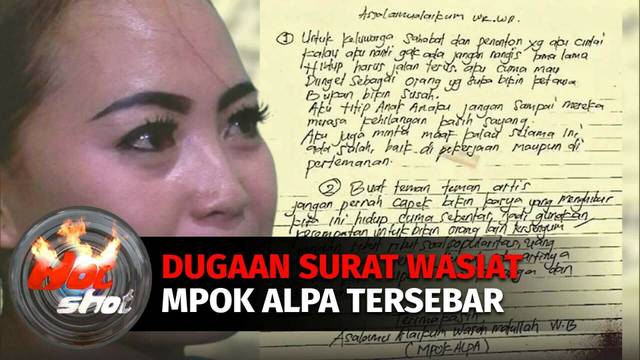 Assalamualaikum WR.WB.
① Untuk keluwarga sahabat dan penonton yg aku cintai
kalau aku nanti gak ada jangan nangis lama lama
Hidup harus jalan terus. aku cuma mau
Di
Sebagai orang yg suka bikin ketawa
Bukan bikin susah.
Aku titip Anak Anaku jangan sampai mereka
merasa kehilangan kasih sayang.
Aku juga minta maaf kalau selama ini,
ada salah, baik di pekerjaan maupun di
pertemanan.
② Buat teman teman artis
jangan pernah capek bikin karya yang menghibur
kita ini hidup cuma sebentar, jadi gunakan
kesempatan untuk bikin orang lain tersenyum
soal popularitas, yang
dan
Assalamu Alaikum Warah matullah W.B
(MPOK ALPA)
Hot
shot
DUGAAN SURAT WASIAT
MPOK ALPA TERSEBAR